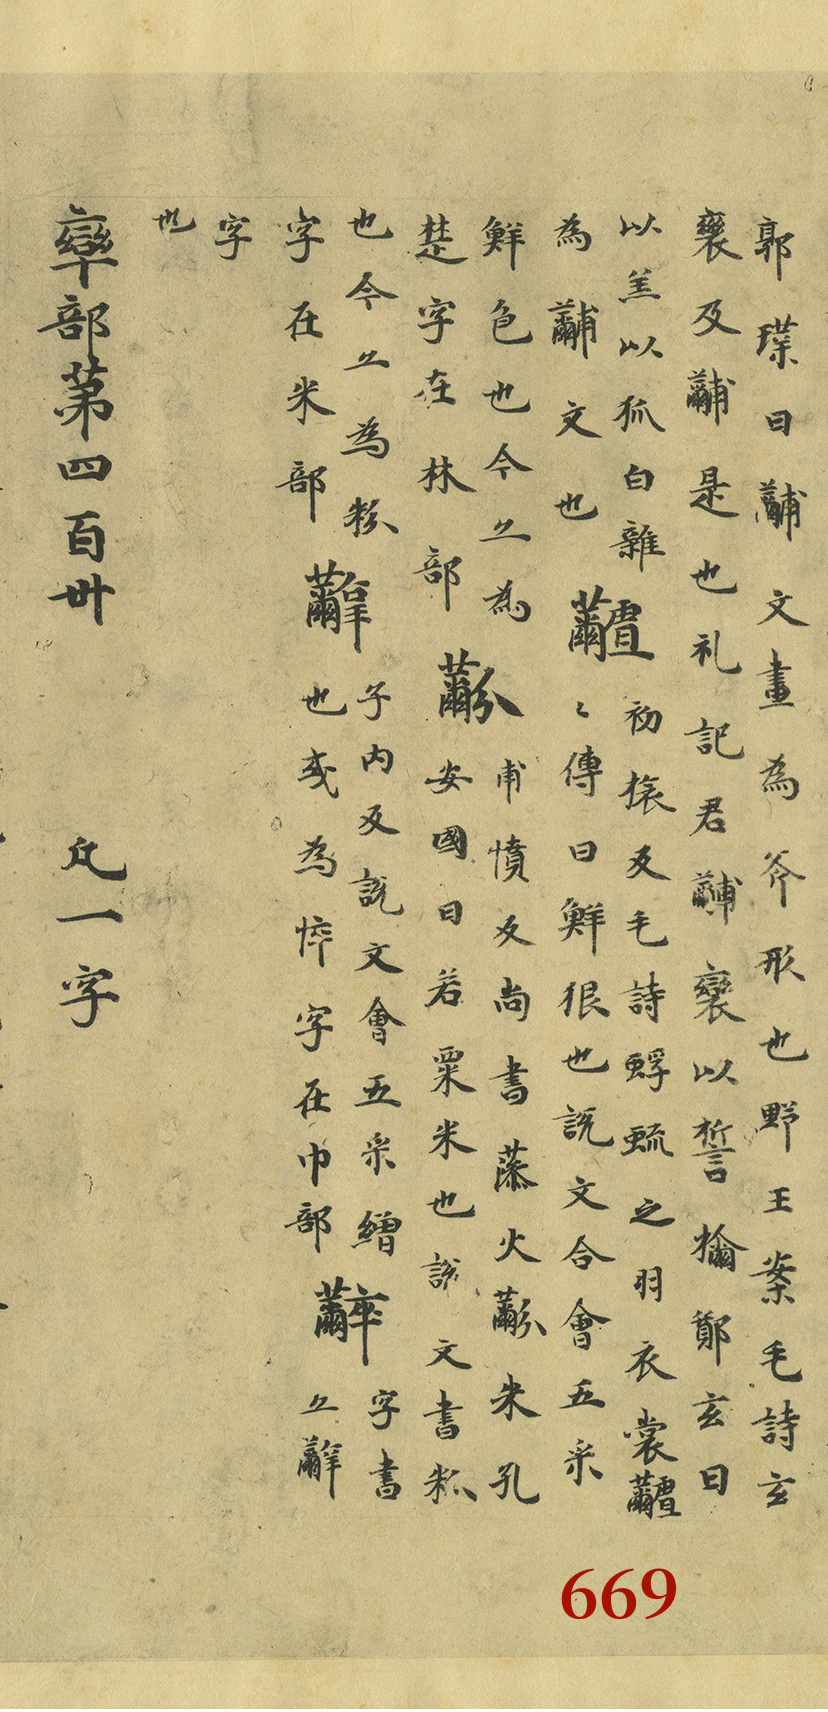 郭璞曰黼文畫為斧形也野王案毛詩玄
衮及黼是也礼記君黼衮以誓獮鄭玄曰
以羔以狐白雜
為黼文也
𪓐
初㨿反毛詩蜉蝣之羽衣裳𪓐
〻傳曰鮮㹞也說文合會五采
鮮色也今亦為
楚字在林部
黺
甫憤反尚書藻火黺米孔
安國曰若粟米也說文書粉
也今亦為粉
字在米部
子內反說文會五采繒
也或為㥞字在巾部
字書
亦
字
也
率部第四百卅 凡一字
669